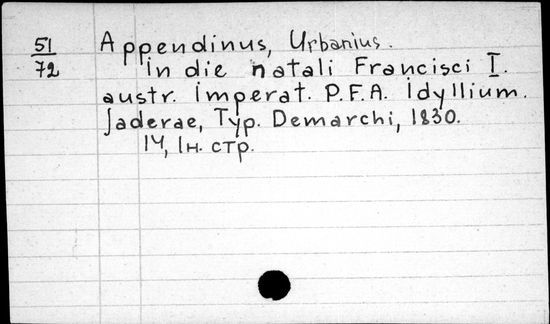 51/72
Appendinus, Urbanius.
in die natali Francisci I.
austr. imperat. P.F.A. idyllium.
Jaderae, Typ. Demarchi, 1830.
14, 1н. стр.